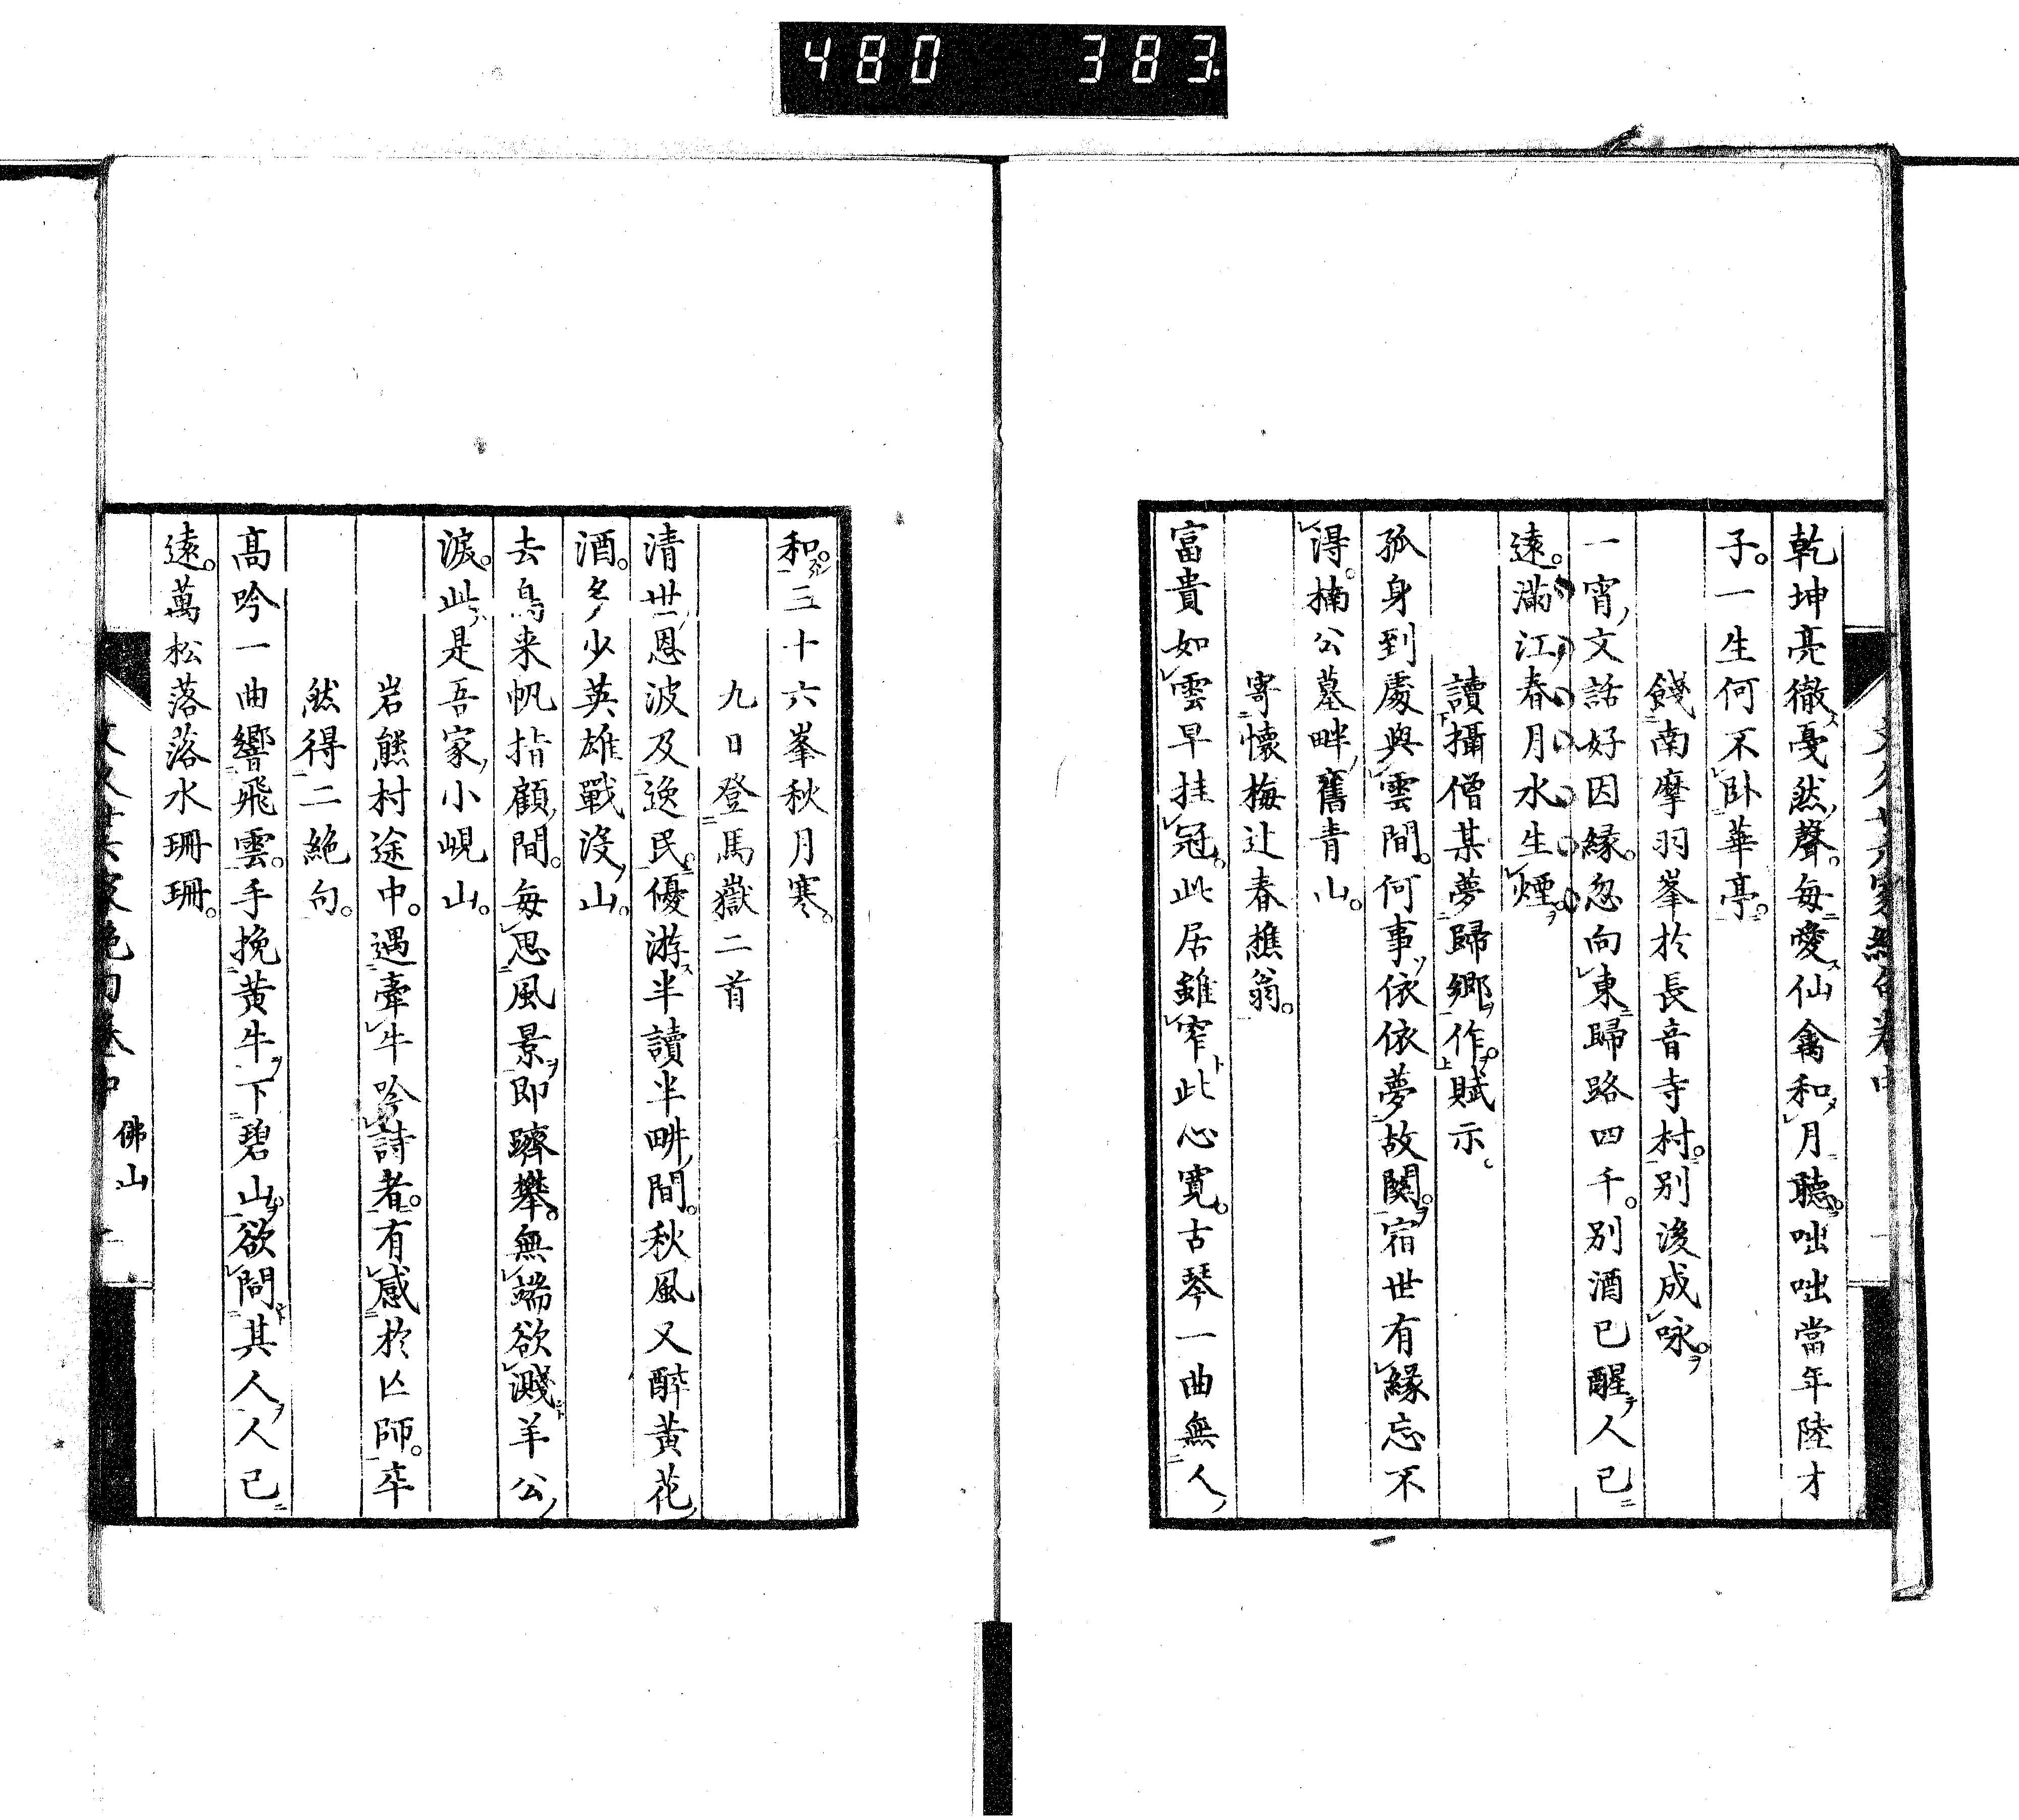 480 383
乾坤亮徹戞然聲。每愛仙禽和月聽。咄咄當年陸才
子。一生何不臥華亭。
餞南摩羽峯於長音寺村。別後成咏。
一宵文話好因緣。忽向東歸路四千。別酒已醒人已
遠。滿江春月水生煙。
讀攝僧某夢歸鄉作。賦示。
孤身到處與雲間。何事依依夢故關。宿世有緣忘不
得。楠公墓畔舊青山。
寄懷梅辻春樵翁。
富貴如雲早挂冠。此居雖窄此心寬。古琴一曲無人
和。三十六峯秋月寒。
九日登馬嶽二首
清世恩波及逸民。優游半讀半畊間。秋風又醉黃花
酒。多少英雄戰沒山。
去鳥来帆指顧間。每思風景即躋攀。無端欲濺羊公
淚。此是吾家小峴山。
岩熊村途中。遇牽牛吟詩者。有感於亡師。卒
然得二絶句。
高吟一曲響飛雲。手挽黃牛下碧山。欲問其人人已
遠。萬松落落水珊珊。
佛山